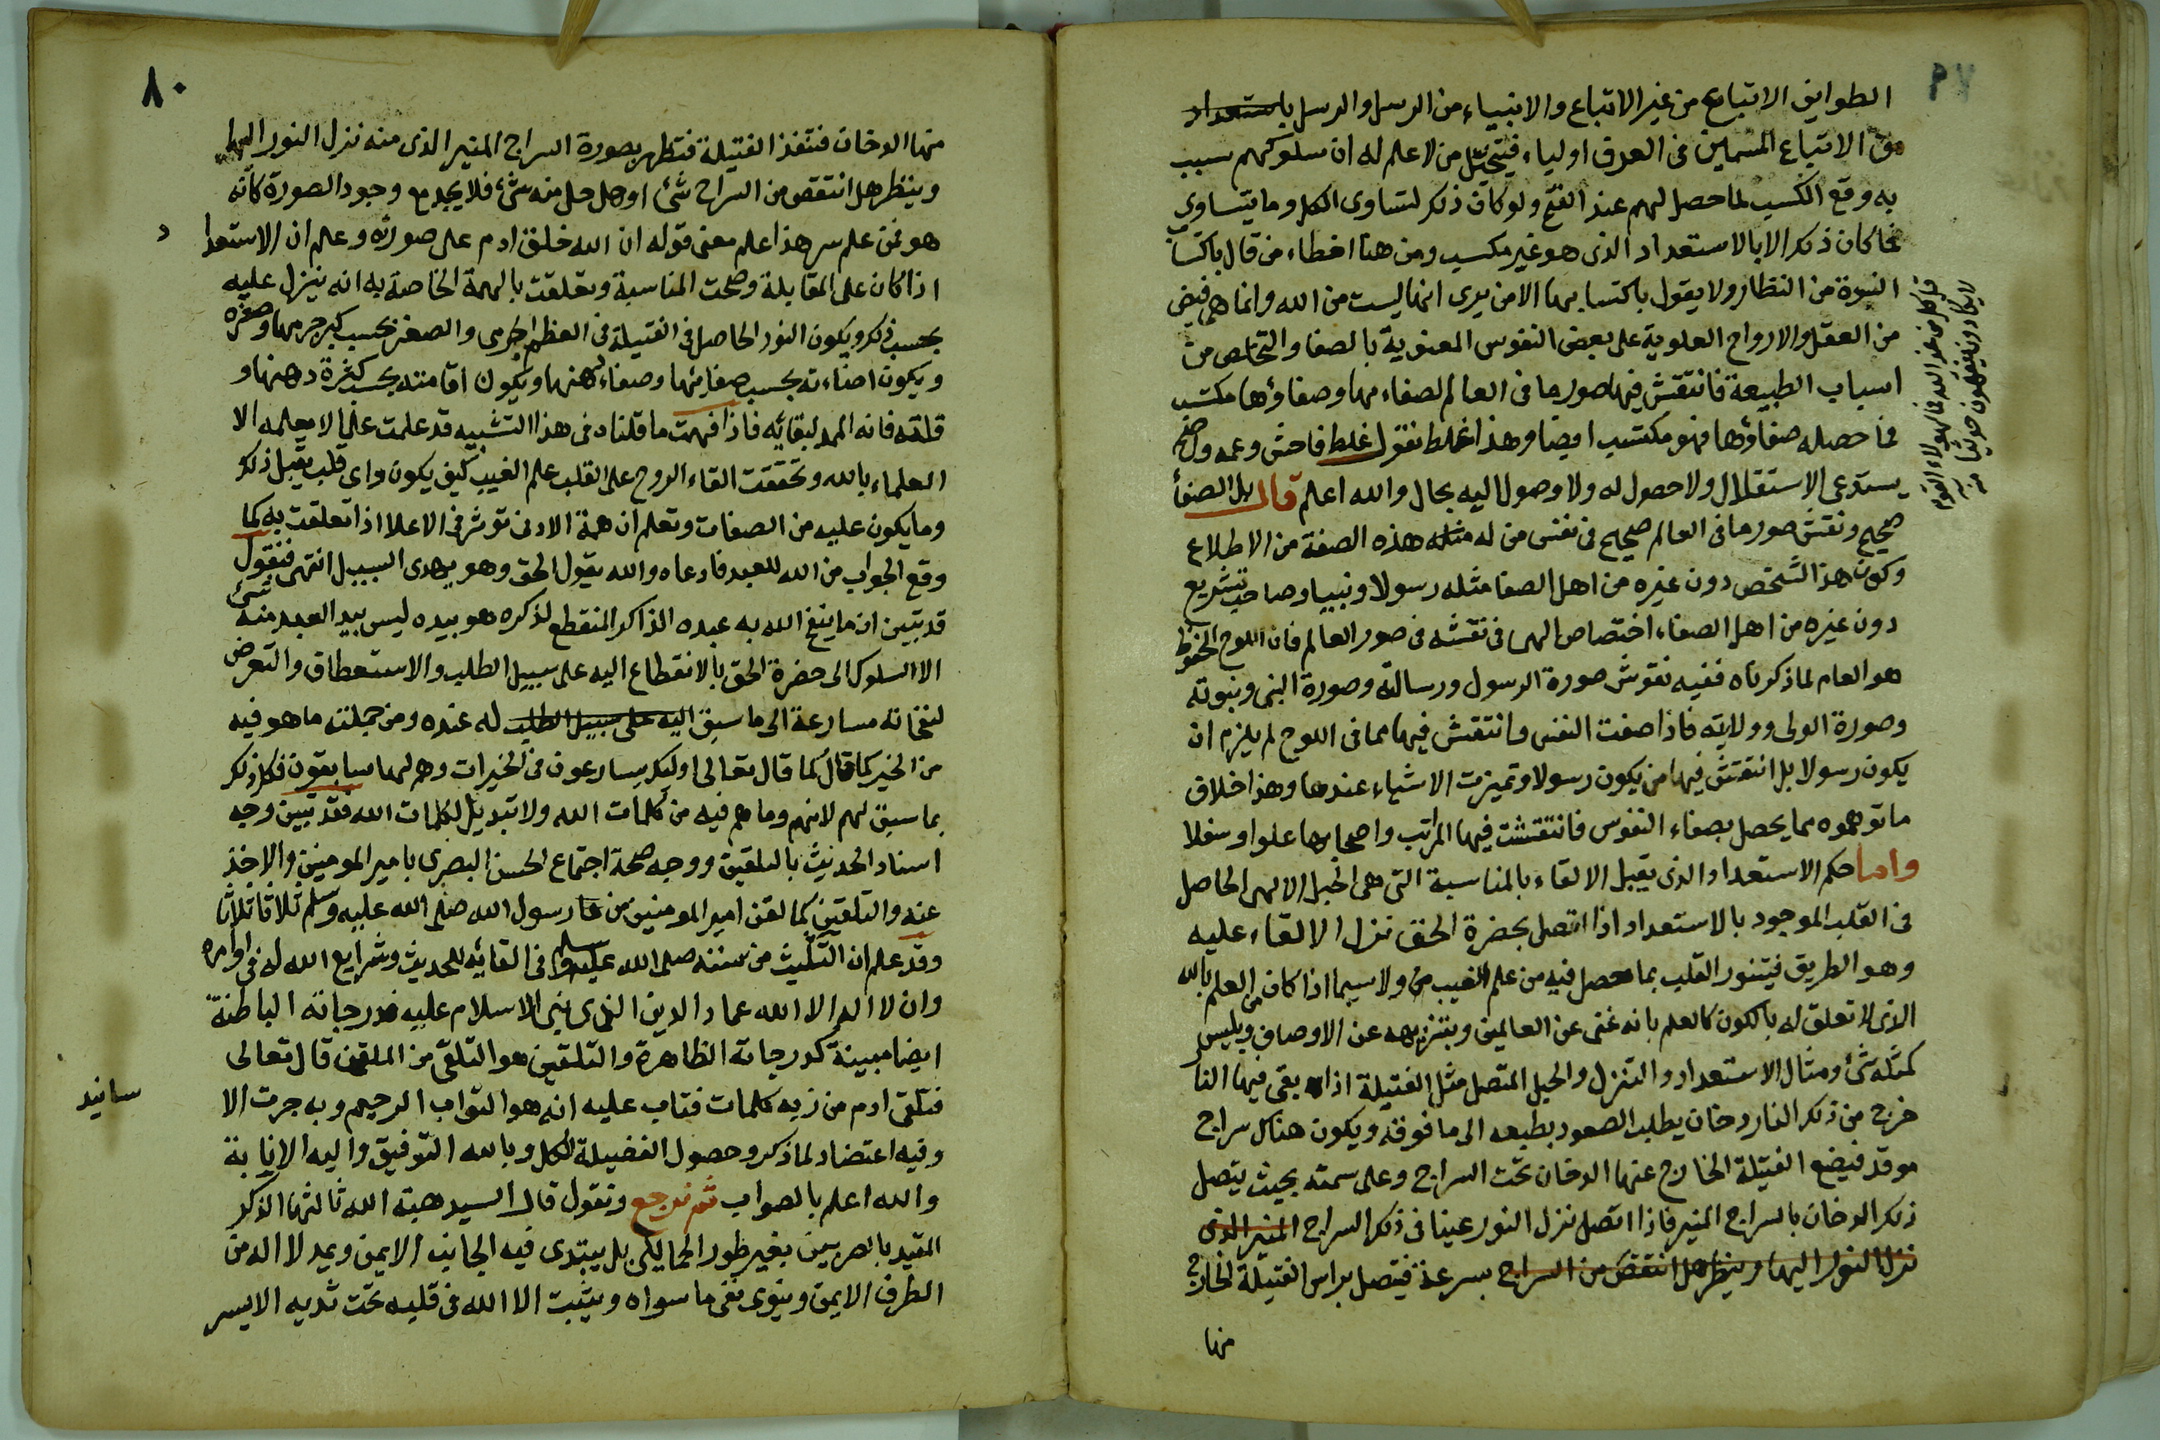 ٩٧
الطوايف الاتباع من غير الاتباع والانبياء من الرسل والرسل باستعداد
من الاتباع المسمين فى العرف اولياء فيتخيل من لا علم له ان سلوكهم سبب
به وقع الكسب لما حصل لهم عند الفتح ولو كان ذلك لتساوى الكل وما يتساوى
فما كان ذلك الا بالاستعداد الذى هو غير مكتسب ومن هنا اخطاء من قال باكتسا
النبوة من النظار ولا يقول باكتسابها الا من يرى انها ليست من الله وانما هى فيض
من العقل والارواح العلوية على بعض النفوس المعنوية بالصفا والتخلص من
اسباب الطبيعة فانتقش فيها صور ما فى العالم لصفاء مها وصفاؤها مكتسب
فما حصله صفاؤها فهو مكتسب ايضا وهذا غلط نقول غلط فاحش وعمه واضح
يستدعى الاستقلال ولا حصول له ولا وصول اليه بحال والله اعلم قال بل الصفأ
صحيح ونقش صور ما فى العالم صحيح فى نفس من له مثله هذه الصفة من الاطلاع
وكون هذا الشخص دون غيره من اهل الصفا مثله رسولا ونبيا وصاحب تشريع
دون غيره من اهل الصفاء اختصاص الهى فى نقشه فى صور العالم فان اللوح المحفوظ
هو العام لما ذكرناه ففيه نقوش صورة الرسول ورسالته وصورة النبى ونبوته
وصورة الولى وولايته فاذا صفت النفس وانتقش فيها مما فى اللوح لم يلزم ان
يكون رسولا بل انتقش فيها من يكون رسولا وتميزت الاشياء عندها وهذا خلاف
ما توهموه مما يحصل بصفاء النفوس فانتقشت فيها المراتب واصحابها علوا وسفلا
واما حكم الاستعداد الذى يقبل الالقاء بالمناسبة التى هى الحبل الالهى الحاصل
فى القلب الموجود بالاستعداد اذا اتصل بحضرة الحق نزل الالقاء عليه
وهو الطريق فيتنور القلب بما حصل فيه من علم الغيب ولا سيما اذا كان من العلم بالله
الذى لا تعلق له بالكون كالعلم بانه غنى عن العالمين وبتنزيهه عن الاوصاف وبليس
كمثله شئ ومثال الاستعداد والتنزل والحبل المتصل مثل الفتيلة اذا بقى فيها النا
خرج من ذلك النار دخان يطلب الصعود بطبعه الى ما فوقه ويكون هناك سراج
موقد فيضع الفتيلة الخارج عنها الدخان تحت السراج وعلى سمته بحيث يتصل
ذلك الدخان بالسراج المنير فاذا اتصل نزل النور عينا فى ذلك السراج المنير الذى
نزل النور اليها وينظر هل انتقض من السراج بسرعة فيتصل براس الفتيلة الخارج
منها
لا يكادون يفقهون حديثا
قل كل من عند الله فما لهولاء القوم
٨٠
منها الدخان فتتقذ الفتيلة فتظهر بصورة السراج المنير الذى منه نزل النور اليها
وينظر هل انتقص من السراج شئ او هل حل منه شئ فلا يجد مع وجود الصورة كانه
هو فمن علم سر هذا علم معنى قوله ان الله خلق ادم على صورته وعلم ان الاستعدا
د
اذا كان على المقابلة وصحت المناسبة وتعلقت بالهمة الخاصة به انه ينزل عليه
بحسب ذلك ويكون النور الحاصل فى الفتيلة فى العظم الجرمى والصغر بحسب كبر جرمها وصغره
ويكون اضاءته بحسب صفائها وصفاء دهنها ويكون اقامته بحسب كثرة دهنها و
قلته فانه الممد لبقائه فاذا فهمت ما قلناه فى هذا التشبيه قد علمت علما لا يعلمه الا
العلماء بالله وتحققت القاء الروح على القلب علم الغيب كيف يكون واى قلب يقبل ذلك
وما يكون عليه من الصفات وتعلم ان همة الادنى توثر فى الاعلا اذا تعلقت به كما
وقع الجواب من الله للعبد فادعاه والله يقول الحق وهو يهدى السبيل انتهى فنقول
قد تبين ان ما ينفخ الله به عبده الذاكر المنقطع لذكره هو بيده ليس بيد العبد منه شئ
الا السلوك الى حضرة الحق بالانقطاع اليه على سبيل الطلب والاستعطاق والتعرض
لنفخاته مسارعة الى ما سبق اليه على سبيل الطلب له عنده ومن جملته ما هو فيه
من الخير كما قال كما قال تعالى اوليك يسارعون فى الخيرات وهم لها سابقون فكل ذلك
بما سبق لهم لانهم وما هم فيه من كلمات الله ولا تبديل لكلمات الله فقد تبين وجه
اسناد الحديث بالتلقين ووجه صحة اجتماع الحسن البصرى بامير المومنين والاخذ
عنه والتلقين كما لقن امير المومنين من رسول الله صلى الله عليه وسلم ثلاثا ثلاثا
وقد علم ان التثليث من سننه صلى الله عليه وسلم فى القائه للحديث وشرايع الله له فى اوامره
وان لا اله الا الله عماد الدين الذى بنى الاسلام عليه فدرجاته الباطنة
ايضا مبينة كدرجاته الظاهرة والتلقين هو التلقى من الملقن قال تعالى
فتلقى ادم من ربه كلمات فتاب عليه انه هو التواب الرحيم وبه جرت الا
سانيد
وفيه اعتضاد لما ذكر وحصول الفضيلة لكل وبالله التوفيق واليه الانابة
والله اعلم بالصواب ثم نرجع ونقول قال السيد هبة الله ثالثها الذكر
المقيد بالضربين بغير طور الحمايلى بل يبتدى فيه الجانب الايمن ويمد لا اله من
الطرف الايمن وينوى نفى ما سواه ويثبت الا الله فى قلبه تحت ثديه الايسر